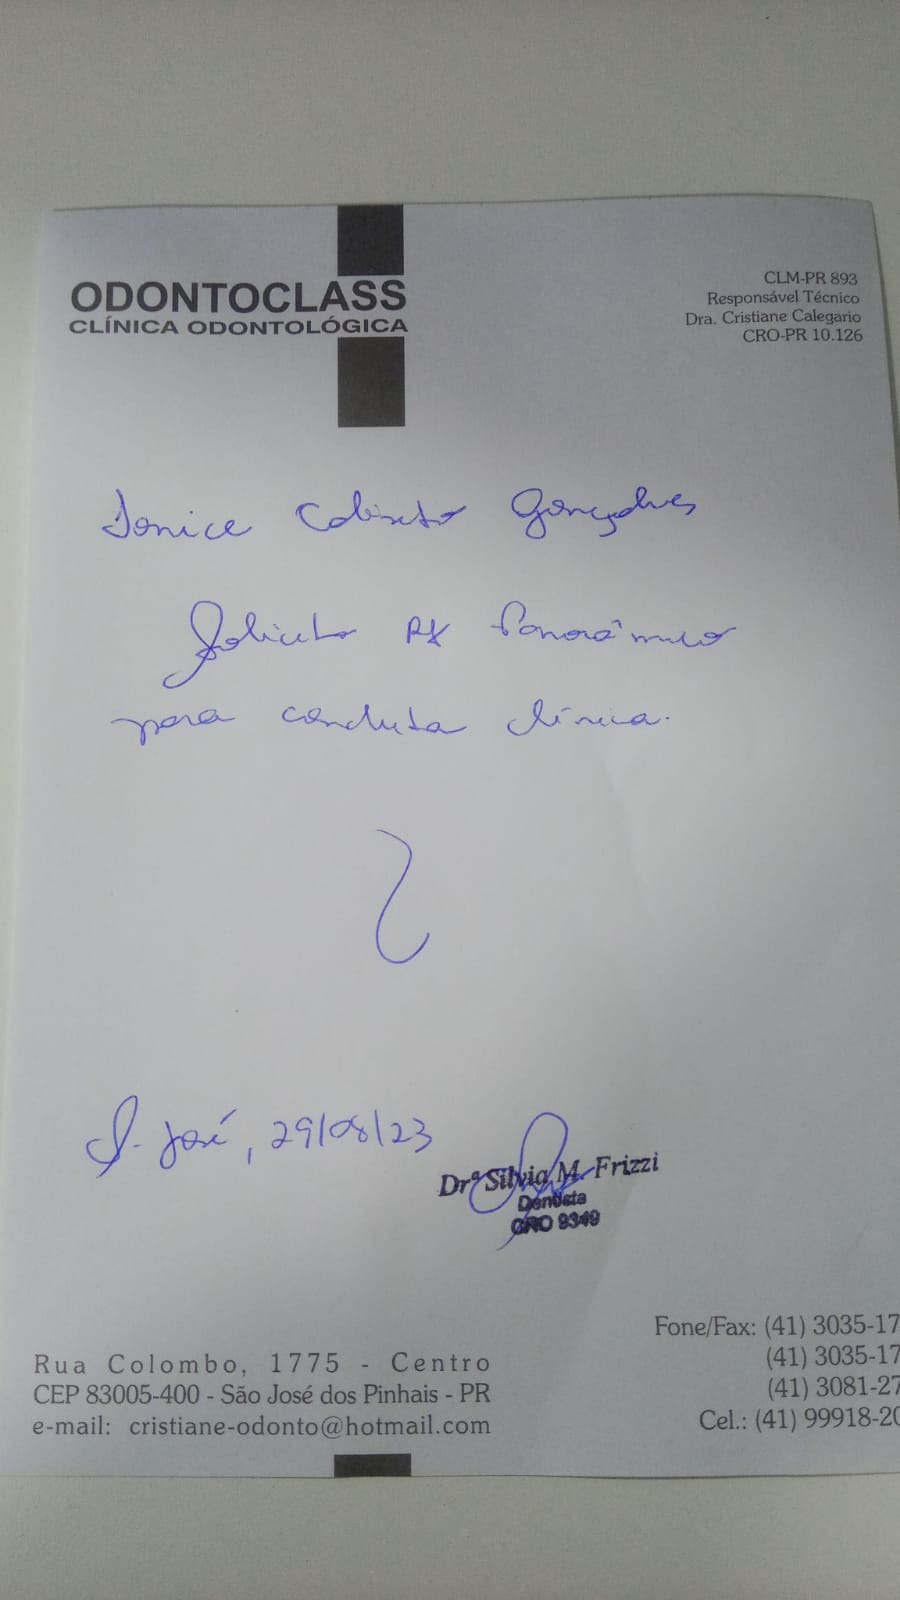 ODONTOCLASS
CLÍNICA ODONTOLÓGICA
CLM-PR 893
Responsável Técnico
Dra. Cristiane Calegario
CRO-PR 10.126
Gonçalves
Solicito RX Panorâmico
para conduta clínica.
S. José, 29/08/23
Drª Silvia M. Frizzi
Dentista
CRO 9349
Rua Colombo, 1775 - Centro
CEP 83005-400 - São José dos Pinhais - PR
e-mail: cristiane-odonto@hotmail.com
Fone/Fax: (41) 3035-17
(41) 3035-17
(41) 3081-27
Cel.: (41) 99918-20